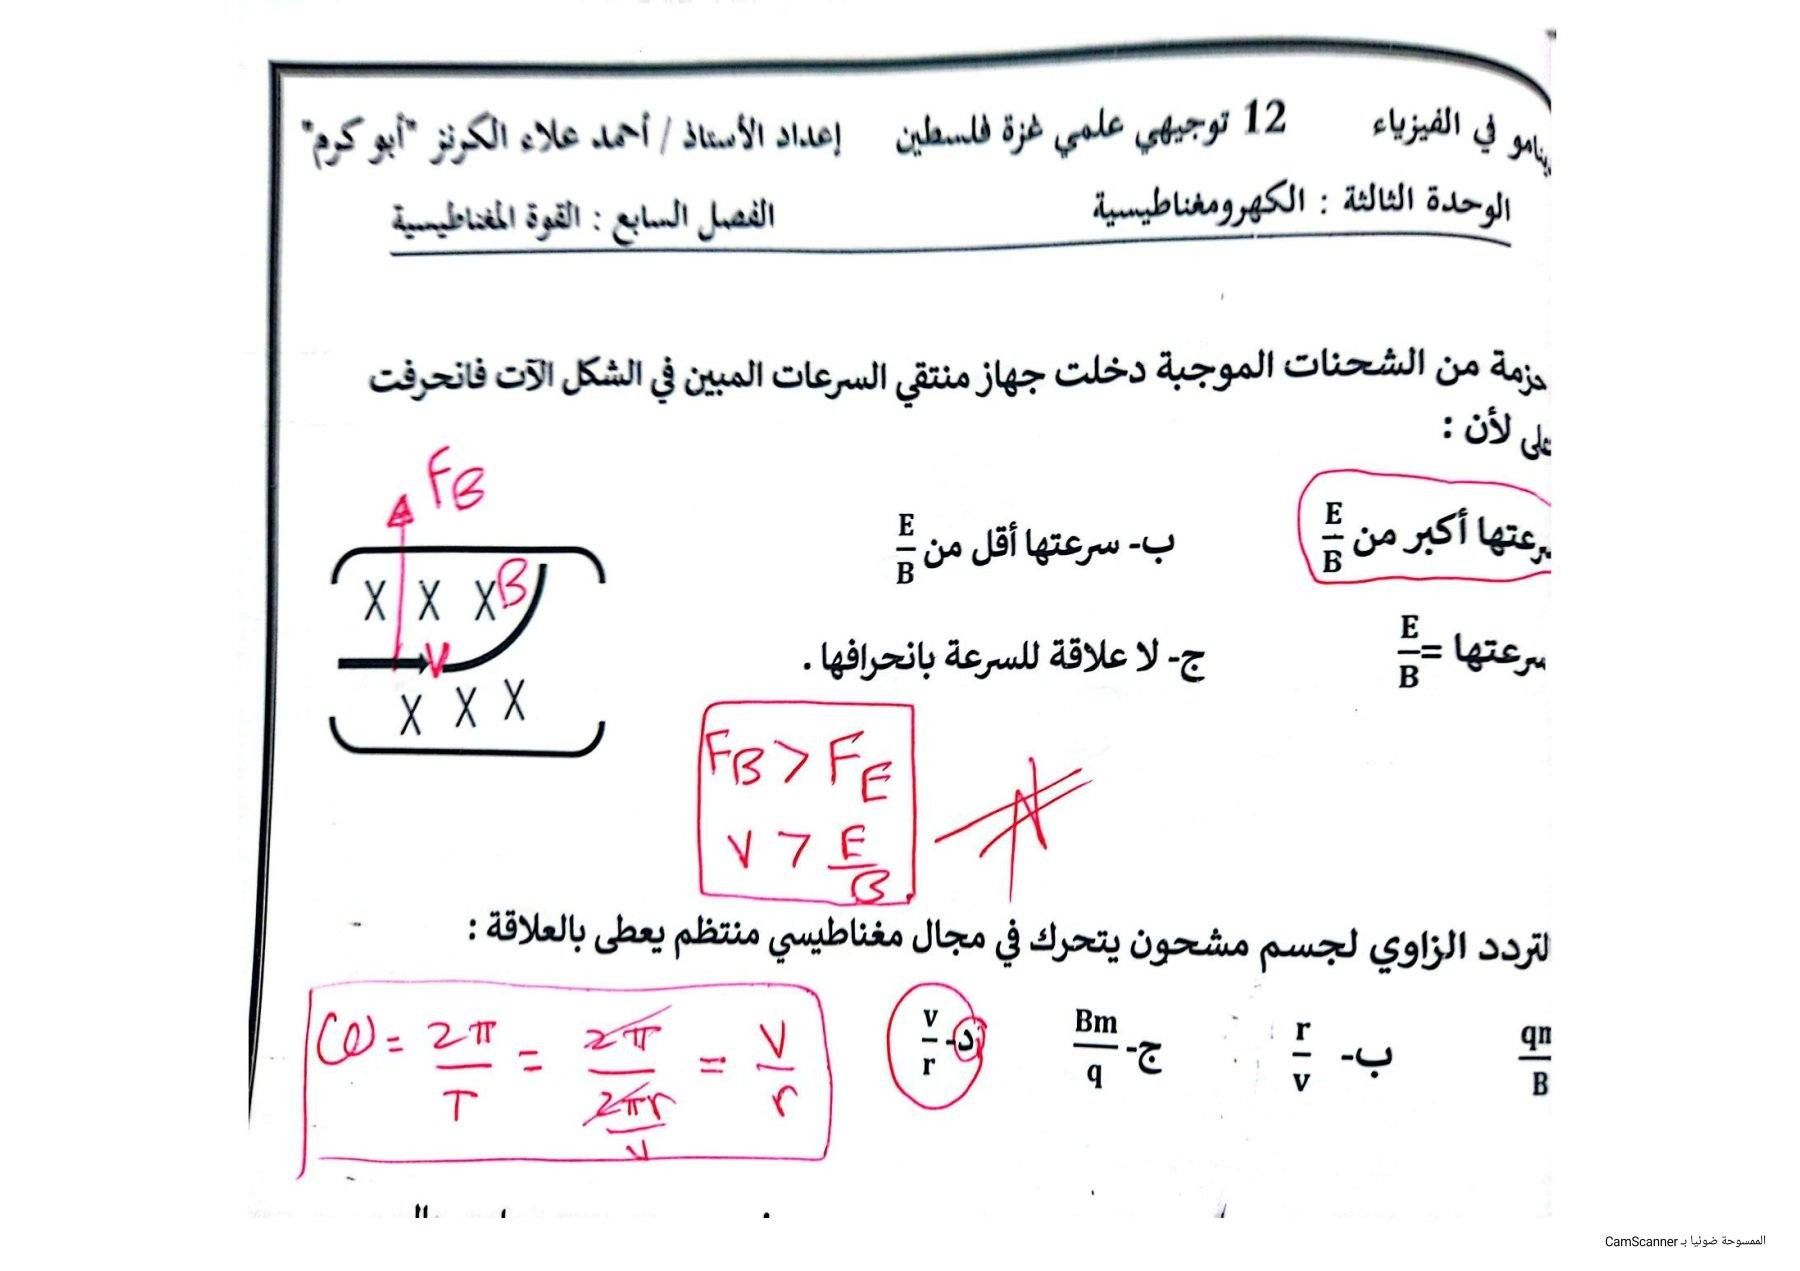 دينامو في الفيزياء 12 توجيهي علمي غزة فلسطين إعداد الأستاذ / أحمد علاء الكرنز "أبو كرم"
الوحدة الثالثة : الكهرومغناطيسية الفصل السابع : القوة المغناطيسية
حزمة من الشحنات الموجبة دخلت جهاز منتقي السرعات المبين في الشكل الآت فانحرفت
لأن :
سرعتها أكبر من E/B ب- سرعتها أقل من E/B
سرعتها = E/B ج- لا علاقة للسرعة بانحرافها .
F_B
X X X B
V
X X X
F_B > F_E
V > E/B
التردد الزاوي لجسم مشحون يتحرك في مجال مغناطيسي منتظم يعطى بالعلاقة :
ب- r/v ج- Bm/q د- v/r
ω = 2π/T = 2π/(2πr/v) = V/r
الممسوحة ضوئيا بـ CamScanner